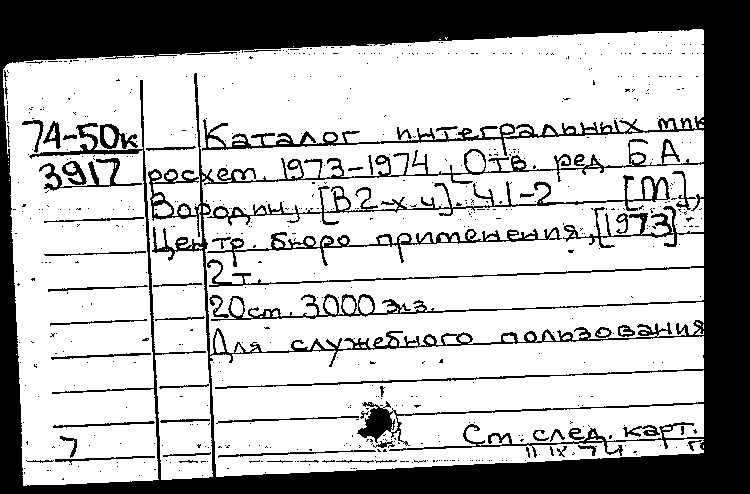 74-50к
3917
Каталог интегральных мик
росхем. 1973-1974 [Отв. ред Б А.
Бородин]. [В 2-х ч]. Ч. 1-2 [М],
Центр. бюро применения, [1973]
2 т.
20 см. 3000 экз.
Для служебного пользования
7
См. след. карт.